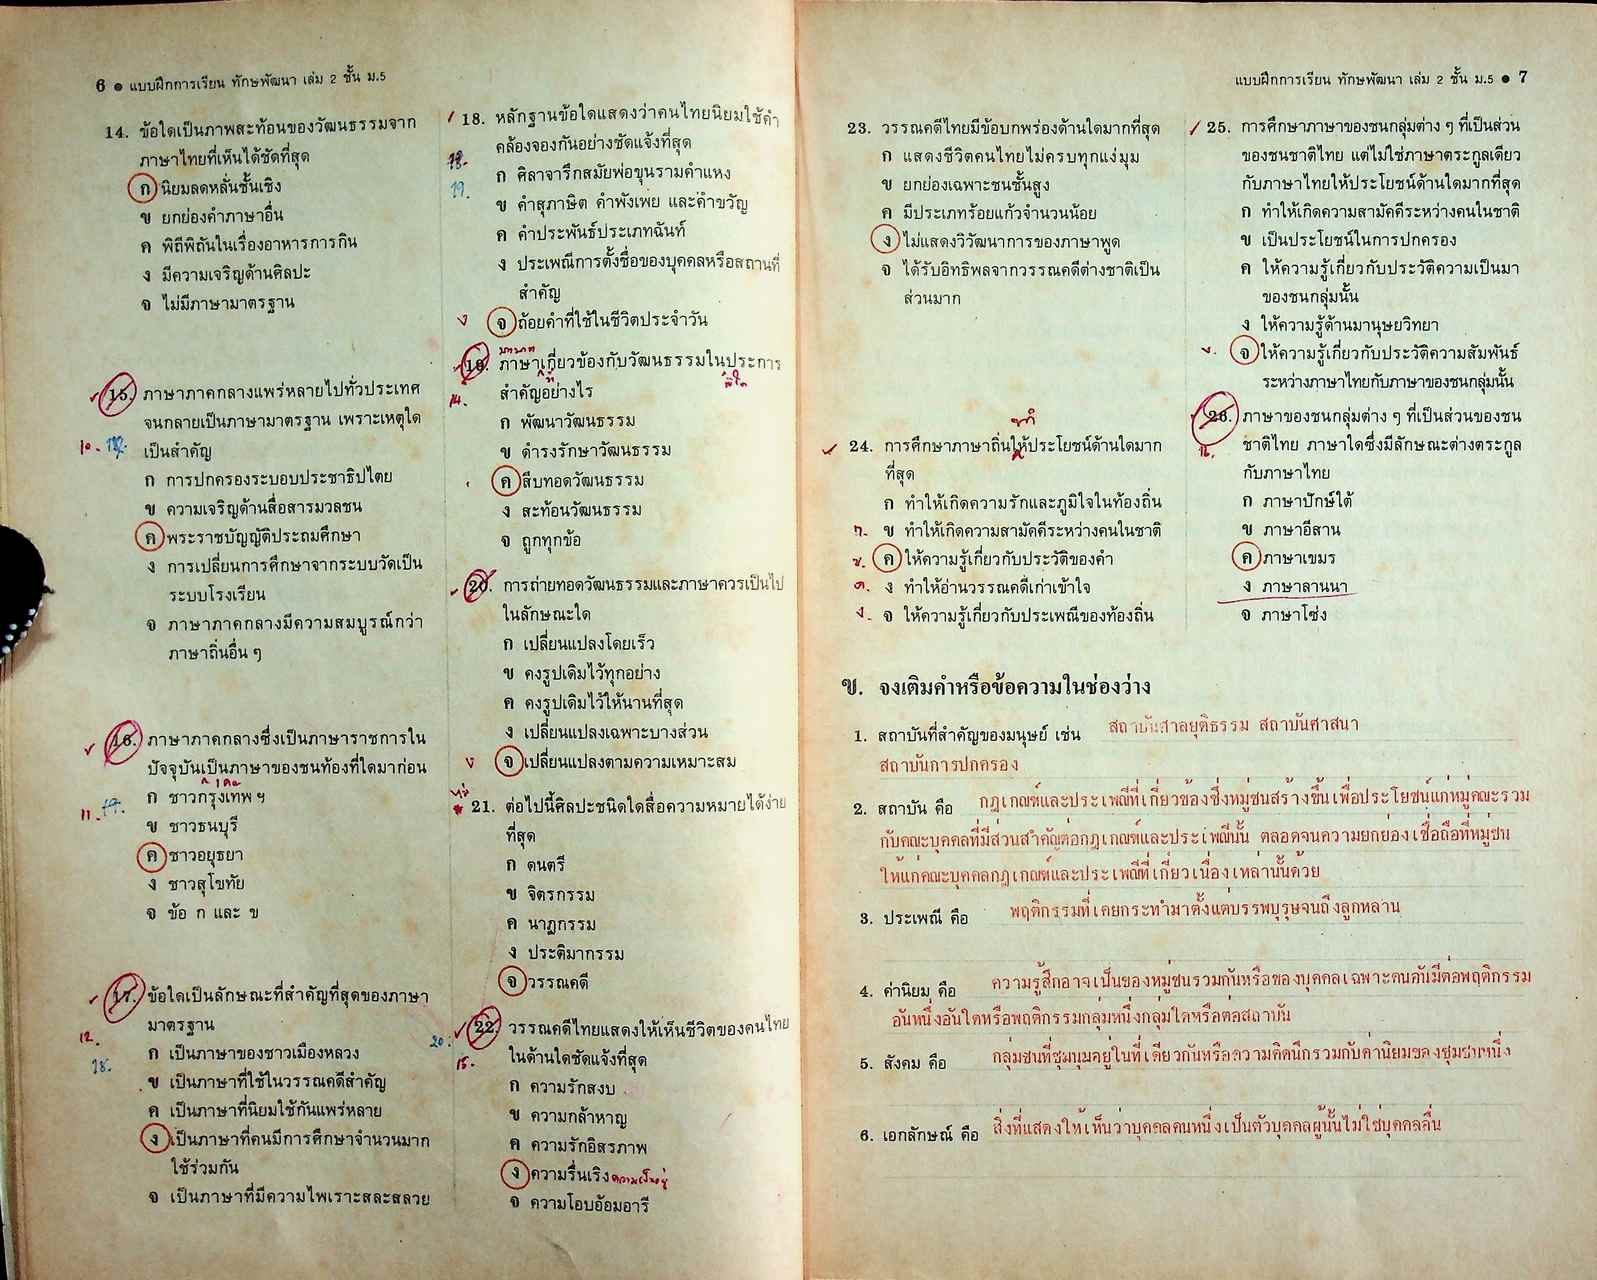 6 ● แบบฝึกการเรียน ทักษพัฒนา เล่ม 2 ชั้น ม.5
14. ข้อใดเป็นภาพสะท้อนของวัฒนธรรมจาก
ภาษาไทยที่เห็นได้ชัดที่สุด
ก นิยมลดหลั่นชั้นเชิง
ข ยกย่องคำภาษาอื่น
ค พิถีพิถันในเรื่องอาหารการกิน
ง มีความเจริญด้านศิลปะ
จ ไม่มีภาษามาตรฐาน
15. ภาษาภาคกลางแพร่หลายไปทั่วประเทศ
จนกลายเป็นภาษามาตรฐาน เพราะเหตุใด
10.
เป็นสำคัญ
ก การปกครองระบอบประชาธิปไตย
ข ความเจริญด้านสื่อสารมวลชน
ค พระราชบัญญัติประถมศึกษา
ง การเปลี่ยนการศึกษาจากระบบวัดเป็น
ระบบโรงเรียน
จ ภาษาภาคกลางมีความสมบูรณ์กว่า
ภาษาถิ่นอื่น ๆ
16. ภาษาภาคกลางซึ่งเป็นภาษาราชการใน
ปัจจุบันเป็นภาษาของชนท้องที่ใดมาก่อน
ก ชาวกรุงเทพ ฯ
11.
ข ชาวธนบุรี
ค ชาวอยุธยา
ง ชาวสุโขทัย
จ ข้อ ก และ ข
17. ข้อใดเป็นลักษณะที่สำคัญที่สุดของภาษา
มาตรฐาน
12.
ก เป็นภาษาของชาวเมืองหลวง
18.
ข เป็นภาษาที่ใช้ในวรรณคดีสำคัญ
ค เป็นภาษาที่นิยมใช้กันแพร่หลาย
ง เป็นภาษาที่คนมีการศึกษาจำนวนมาก
ใช้ร่วมกัน
จ เป็นภาษาที่มีความไพเราะสละสลวย
18. หลักฐานข้อใดแสดงว่าคนไทยนิยมใช้คำ
คล้องจองกันอย่างชัดแจ้งที่สุด
ก ศิลาจารึกสมัยพ่อขุนรามคำแหง
19.
ข คำสุภาษิต คำพังเพย และคำขวัญ
ค คำประพันธ์ประเภทฉันท์
ง ประเพณีการตั้งชื่อของบุคคลหรือสถานที่
สำคัญ
ง จ ถ้อยคำที่ใช้ในชีวิตประจำวัน
19. ภาษาเกี่ยวข้องกับวัฒนธรรมในประการ
สำคัญอย่างไร
14.
ก พัฒนาวัฒนธรรม
ข ดำรงรักษาวัฒนธรรม
ค สืบทอดวัฒนธรรม
ง สะท้อนวัฒนธรรม
จ ถูกทุกข้อ
20. การถ่ายทอดวัฒนธรรมและภาษาควรเป็นไป
ในลักษณะใด
ก เปลี่ยนแปลงโดยเร็ว
ข คงรูปเดิมไว้ทุกอย่าง
ค คงรูปเดิมไว้ให้นานที่สุด
ง เปลี่ยนแปลงเฉพาะบางส่วน
ง จ เปลี่ยนแปลงตามความเหมาะสม
21. ต่อไปนี้ศิลปะชนิดใดสื่อความหมายได้ง่าย
ที่สุด
ก ดนตรี
ข จิตรกรรม
ค นาฏกรรม
ง ประติมากรรม
จ วรรณคดี
22. วรรณคดีไทยแสดงให้เห็นชีวิตของคนไทย
20.
ในด้านใดชัดแจ้งที่สุด
15.
ก ความรักสงบ
ข ความกล้าหาญ
ค ความรักอิสรภาพ
ง ความรื่นเริง ความเป็นอยู่
จ ความโอบอ้อมอารี
แบบฝึกการเรียน ทักษพัฒนา เล่ม 2 ชั้น ม.5 ● 7
23. วรรณคดีไทยมีข้อบกพร่องด้านใดมากที่สุด
ก แสดงชีวิตคนไทยไม่ครบทุกแง่มุม
ข ยกย่องเฉพาะชนชั้นสูง
ค มีประเภทร้อยแก้วจำนวนน้อย
ง ไม่แสดงวิวัฒนาการของภาษาพูด
จ ได้รับอิทธิพลจากวรรณคดีต่างชาติเป็น
ส่วนมาก
24. การศึกษาภาษาถิ่นให้ประโยชน์ด้านใดมาก
ที่สุด
ก ทำให้เกิดความรักและภูมิใจในท้องถิ่น
ก. ข ทำให้เกิดความสามัคคีระหว่างคนในชาติ
ข. ค ให้ความรู้เกี่ยวกับประวัติของคำ
ค. ง ทำให้อ่านวรรณคดีเก่าเข้าใจ
ง. จ ให้ความรู้เกี่ยวกับประเพณีของท้องถิ่น
25. การศึกษาภาษาของชนกลุ่มต่าง ๆ ที่เป็นส่วน
ของชนชาติไทย แต่ไม่ใช่ภาษาตระกูลเดียว
กับภาษาไทยให้ประโยชน์ด้านใดมากที่สุด
ก ทำให้เกิดความสามัคคีระหว่างคนในชาติ
ข เป็นประโยชน์ในการปกครอง
ค ให้ความรู้เกี่ยวกับประวัติความเป็นมา
ของชนกลุ่มนั้น
ง ให้ความรู้ด้านมานุษยวิทยา
ง. จ ให้ความรู้เกี่ยวกับประวัติความสัมพันธ์
ระหว่างภาษาไทยกับภาษาของชนกลุ่มนั้น
26. ภาษาของชนกลุ่มต่าง ๆ ที่เป็นส่วนของชน
ชาติไทย ภาษาใดซึ่งมีลักษณะต่างตระกูล
กับภาษาไทย
ก ภาษาปักษ์ใต้
ข ภาษาอีสาน
ค ภาษาเขมร
ง ภาษาลานนา
จ ภาษาโซ่ง
ข. จงเติมคำหรือข้อความในช่องว่าง
1. สถาบันที่สำคัญของมนุษย์ เช่น สถาบันศาลยุติธรรม สถาบันศาสนา
สถาบันการปกครอง
2. สถาบัน คือ กฎเกณฑ์และประเพณีที่เกี่ยวข้องซึ่งหมู่ชนสร้างขึ้นเพื่อประโยชน์แก่หมู่คณะรวม
กับคณะบุคคลที่มีส่วนสำคัญต่อกฎเกณฑ์และประเพณีนั้น ตลอดจนความยกย่องเชื่อถือที่หมู่ชน
ให้แก่คณะบุคคลกฎเกณฑ์และประเพณีที่เกี่ยวเนื่องเหล่านั้นด้วย
3. ประเพณี คือ พฤติกรรมที่เคยกระทำมาตั้งแต่บรรพบุรุษจนถึงลูกหลาน
4. ค่านิยม คือ ความรู้สึกอาจเป็นของหมู่ชนรวมกันหรือของบุคคลเฉพาะตนอันมีต่อพฤติกรรม
อันหนึ่งอันใดหรือพฤติกรรมกลุ่มหนึ่งกลุ่มใดหรือต่อสถาบัน
5. สังคม คือ กลุ่มชนที่ชุมนุมอยู่ในที่เดียวกันหรือความคิดนึกรวมกับค่านิยมของชุมชนหนึ่ง
6. เอกลักษณ์ คือ สิ่งที่แสดงให้เห็นว่าบุคคลคนหนึ่งเป็นตัวบุคคลผู้นั้นไม่ใช่บุคคลอื่น